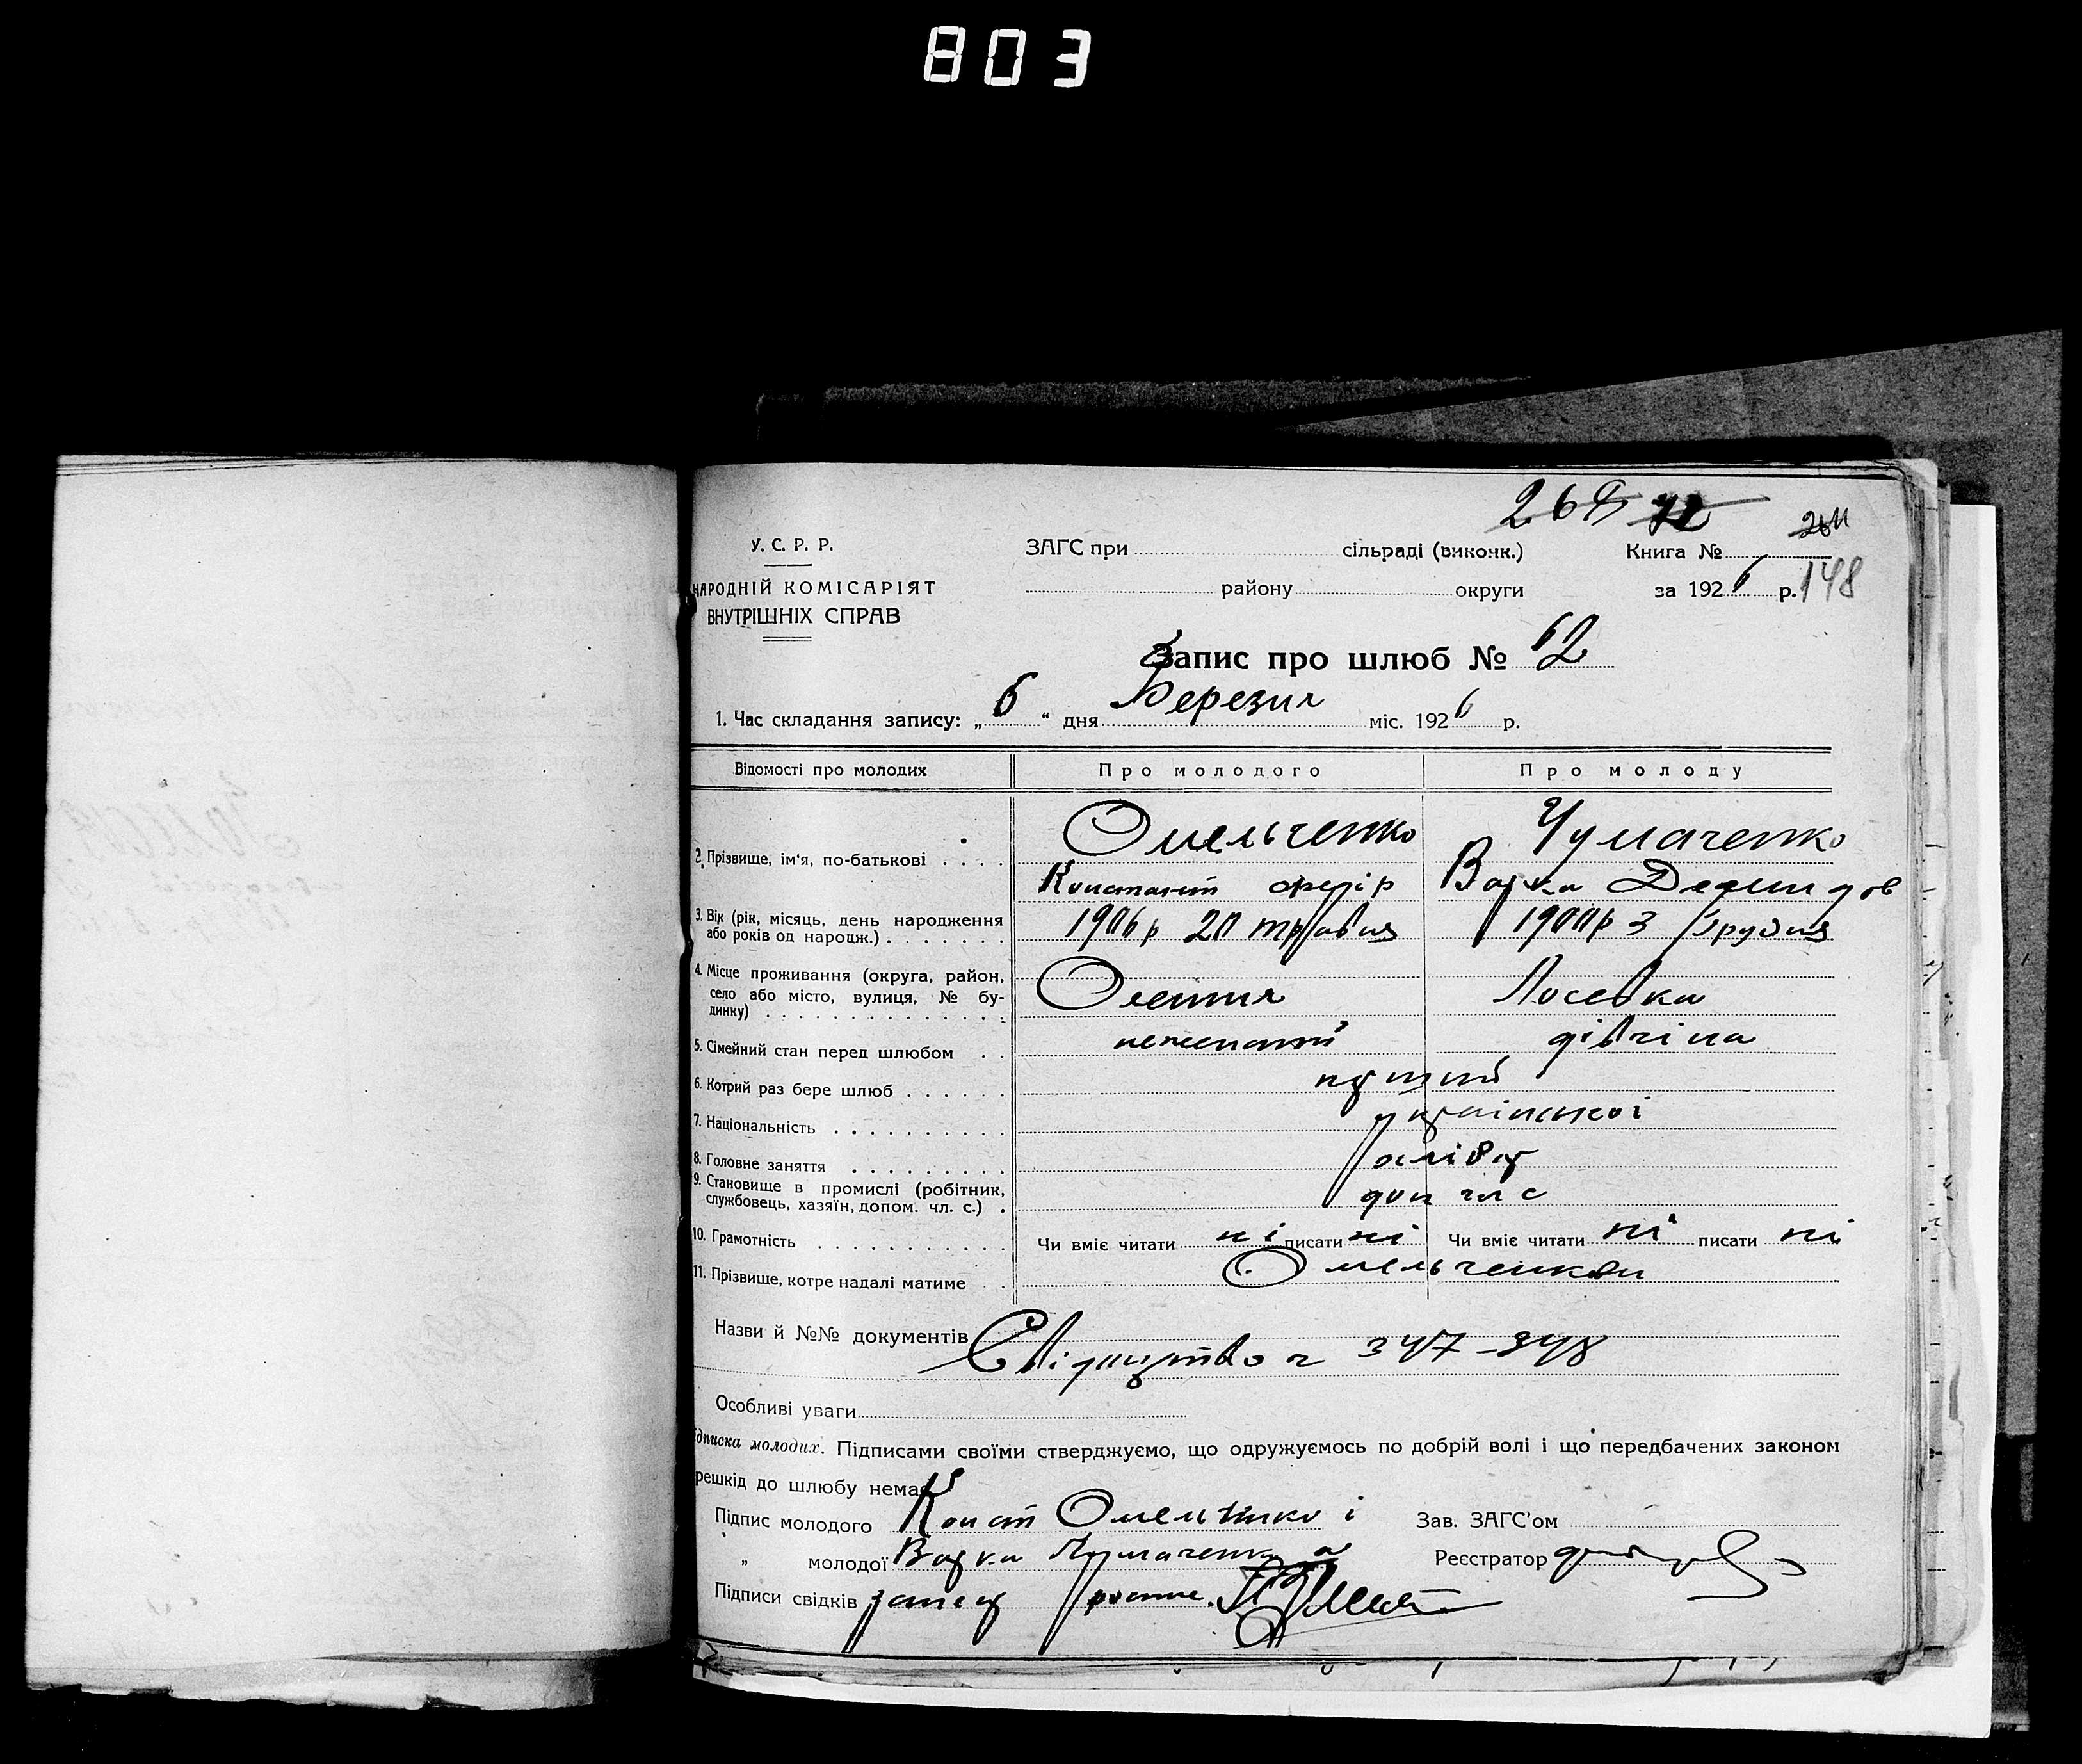 803
264 72 264
У. С. Р. Р. ЗАГС при сільраді (виконк.) Книга №
НАРОДНІЙ КОМІСАРІЯТ району округи за 1926 р. 148
ВНУТРІШНІХ СПРАВ
Запис про шлюб № 62
1. Час складання запису: „6“ дня Березня міс. 1926 р.
Відомості про молодих Про молодого Про молоду
Омельченко Чумаченко
2. Прізвище, ім'я, по-батькові
Констант Федір Варка Демидов
3. Вік (рік, місяць, день народження
або років од народж.) 1906р 20 травня 1900р 3 грудня
4. Місце проживання (округа, район,
село або місто, вулиця, № бу- Лосевка
динку)
5. Сімейний стан перед шлюбом неженатий дівчіна
6. Котрий раз бере шлюб перший
7. Національність української
8. Головне заняття хлібор
9. Становище в промислі (робітник,
службовець, хазяїн, допом. чл. с.) доп чл с
10. Грамотність Чи вміє читати ні писати ні Чи вміє читати ні писати ні
11. Прізвище, котре надалі матиме Омельченкови
Назви й №№ документів
Свідоцтво ч 347-348
Особливі уваги
ідписка молодих. Підписами своїми стверджуємо, що одружуємось по добрій волі і що передбачених законом
решкід до шлюбу немає
Підпис молодого Конст Омельченко і Зав. ЗАГС'ом
„ молодої Варка Чумаченко а Реєстратор
Підписи свідків